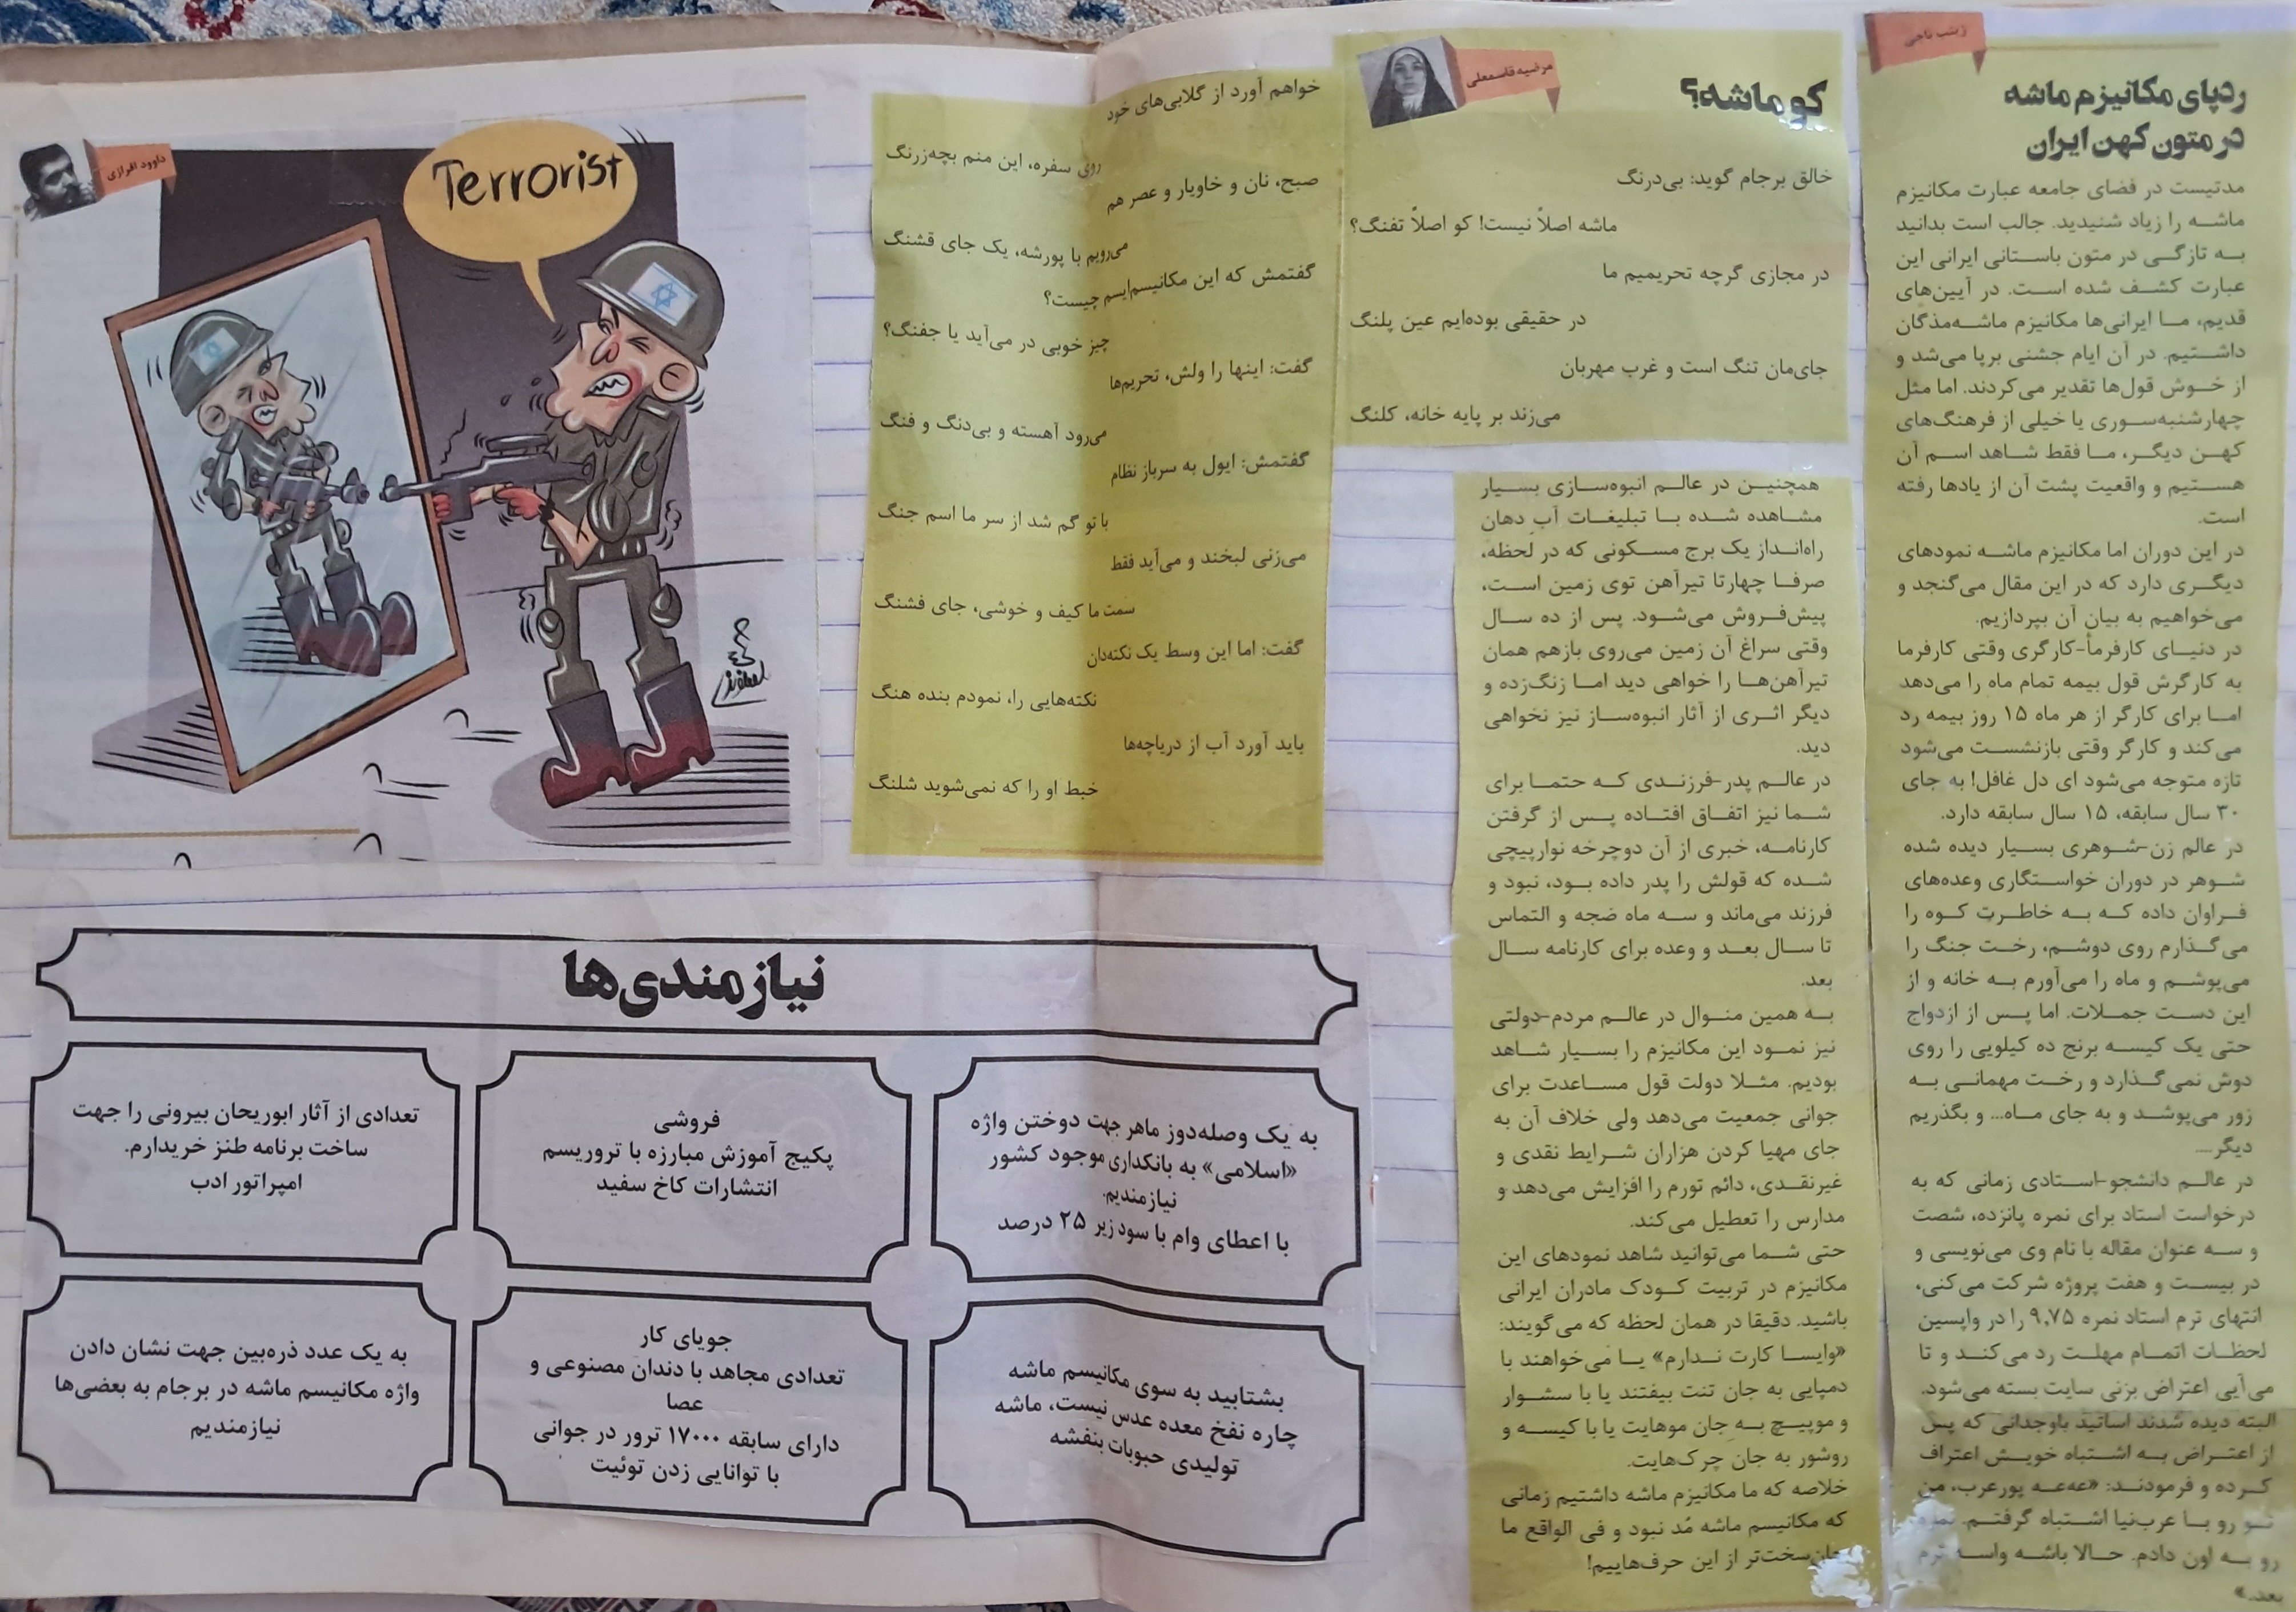 زینب ناجی
ردپای مکانیزم ماشه
در متون کهن ایران
مدتیست در فضای جامعه عبارت مکانیزم
ماشه را زیاد شنیدید. جالب است بدانید
به تازگی در متون باستانی ایرانی این
عبارت کشف شده است. در آیین‌های
قدیم، ما ایرانی‌ها مکانیزم ماشه‌مذگان
داشتیم. در آن ایام جشنی برپا می‌شد و
از خوش قول‌ها تقدیر می‌کردند. اما مثل
چهارشنبه‌سوری یا خیلی از فرهنگ‌های
کهن دیگر، ما فقط شاهد اسم آن
هستیم و واقعیت پشت آن از یادها رفته
است.
در این دوران اما مکانیزم ماشه نمودهای
دیگری دارد که در این مقال می‌گنجد و
می‌خواهیم به بیان آن بپردازیم.
در دنیای کارفرما-کارگری وقتی کارفرما
به کارگرش قول بیمه تمام ماه را می‌دهد
اما برای کارگر از هر ماه ۱۵ روز بیمه رد
می‌کند و کارگر وقتی بازنشست می‌شود
تازه متوجه می‌شود ای دل غافل! به جای
۳۰ سال سابقه، ۱۵ سال سابقه دارد.
در عالم زن-شوهری بسیار دیده شده
شوهر در دوران خواستگاری وعده‌های
فراوان داده که به خاطرت کوه را
می‌گذارم روی دوشم، رخت جنگ را
می‌پوشم و ماه را می‌آورم به خانه و از
این دست جملات. اما پس از ازدواج
حتی یک کیسه برنج ده کیلویی را روی
دوش نمی‌گذارد و رخت مهمانی به
زور می‌پوشد و به جای ماه... و بگذریم
دیگر....
در عالم دانشجو-استادی زمانی که به
درخواست استاد برای نمره پانزده، شصت
و سه عنوان مقاله با نام وی می‌نویسی و
در بیست و هفت پروژه شرکت می‌کنی،
انتهای ترم استاد نمره ۹,۷۵ را در واپسین
لحظات اتمام مهلت رد می‌کند و تا
می‌آیی اعتراض بزنی سایت بسته می‌شود.
البته دیده شدند اساتید باوجدانی که پس
از اعتراض به اشتباه خویش اعتراف
کرده و فرمودند: «عه‌عه پورعرب، من
تو رو با عرب‌نیا اشتباه گرفتم. نمره
رو به اون دادم. حالا باشه واسه ترم
بعد.»
همچنین در عالم انبوه‌سازی بسیار
مشاهده شده با تبلیغات آب دهان
راه‌انداز یک برج مسکونی که در لحظه،
صرفا چهارتا تیرآهن توی زمین است،
پیش‌فروش می‌شود. پس از ده سال
وقتی سراغ آن زمین می‌روی بازهم همان
تیرآهن‌ها را خواهی دید اما زنگ‌زده و
دیگر اثری از آثار انبوه‌ساز نیز نخواهی
دید.
در عالم پدر-فرزندی که حتما برای
شما نیز اتفاق افتاده پس از گرفتن
کارنامه، خبری از آن دوچرخه نوارپیچی
شده که قولش را پدر داده بود، نبود و
فرزند می‌ماند و سه ماه ضجه و التماس
تا سال بعد و وعده برای کارنامه سال
بعد.
به همین منوال در عالم مردم-دولتی
نیز نمود این مکانیزم را بسیار شاهد
بودیم. مثلا دولت قول مساعدت برای
جوانی جمعیت می‌دهد ولی خلاف آن به
جای مهیا کردن هزاران شرایط نقدی و
غیرنقدی، دائم تورم را افزایش می‌دهد و
مدارس را تعطیل می‌کند.
حتی شما می‌توانید شاهد نمودهای این
مکانیزم در تربیت کودک مادران ایرانی
باشید. دقیقا در همان لحظه که می‌گویند:
«وایسا کارت ندارم» یا می‌خواهند با
دمپایی به جان تنت بیفتند یا با سشوار
و موپیچ به جان موهایت یا با کیسه و
روشور به جان چرک‌هایت.
خلاصه که ما مکانیزم ماشه داشتیم زمانی
که مکانیسم ماشه مُد نبود و فی الواقع ما
جان‌سخت‌تر از این حرف‌هاییم!
مرضیه قاسمعلی
کو ماشه؟
خالق برجام گوید: بی‌درنگ
ماشه اصلاً نیست! کو اصلاً تفنگ؟
در مجازی گرچه تحریمیم ما
در حقیقی بوده‌ایم عین پلنگ
جای‌مان تنگ است و غرب مهربان
می‌زند بر پایه خانه، کلنگ
خواهم آورد از گلابی‌های خود
روی سفره، این منم بچه‌زرنگ
صبح، نان و خاویار و عصر هم
می‌رویم با پورشه، یک جای قشنگ
گفتمش که این مکانیسم‌ایسم چیست؟
چیز خوبی در می‌آید یا جفنگ؟
گفت: اینها را ولش، تحریم‌ها
می‌رود آهسته و بی‌دنگ و فنگ
گفتمش: ایول به سرباز نظام
با تو گم شد از سر ما اسم جنگ
می‌زنی لبخند و می‌آید فقط
سمت ما کیف و خوشی، جای فشنگ
گفت: اما این وسط یک نکته‌دان
نکته‌هایی را، نمودم بنده هنگ
باید آورد آب از دریاچه‌ها
خبط او را که نمی‌شوید شلنگ
داوود افرازی
Terrorist
نیازمندی‌ها
به یک وصله‌دوز ماهر جهت دوختن واژه
«اسلامی» به بانکداری موجود کشور
نیازمندیم.
با اعطای وام با سود زیر ۲۵ درصد
فروشی
پکیج آموزش مبارزه با تروریسم
انتشارات کاخ سفید
تعدادی از آثار ابوریحان بیرونی را جهت
ساخت برنامه طنز خریدارم.
امپراتور ادب
بشتابید به سوی مکانیسم ماشه
چاره نفخ معده عدس نیست، ماشه
تولیدی حبوبات بنفشه
جویای کار
تعدادی مجاهد با دندان مصنوعی و
عصا
دارای سابقه ۱۷۰۰۰ ترور در جوانی
با توانایی زدن توئیت
به یک عدد ذره‌بین جهت نشان دادن
واژه مکانیسم ماشه در برجام به بعضی‌ها
نیازمندیم